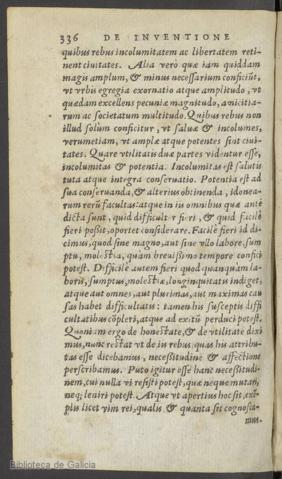 336 DE INVENTIONE
quibus rebus incolumitatem ac libertatem reti-
nent ciuitates. Alia verò quæ iam quiddam
magis amplum, & minus necessarium conficiũt,
vt vrbis egregia exornatio atque amplitudo, vt
quædam excellens pecuniæ magnitudo, amicitia-
rum ac societatum multitudo. Quibus rebus non
illud solùm conficitur, vt saluæ & incolumes,
verumetiam, vt amplæ atque potentes sint ciui-
tates. Quare vtilitatis duæ partes videntur esse,
incolumitas & potentia. Incolumitas est salutis
tuta atque integra conseruatio. Potentia est ad
sua conseruanda, & alterius obtinenda, idonea-
rum rerũ facultas: atque in iis omnibus quæ antè
dicta sunt, quid difficulter fieri, & quid facilè
fieri possit, oportet considerare. Facilè fieri id di-
cimus, quod sine magno, aut sine vllo labore, sum
ptu, molestia, quàm breuissimo tempore confici
potest. Difficilè autem fieri quod quanquam la-
boris, sumptus, molestiæ, longinquitatis indiget,
atque aut omnes, aut plurimas, aut maximas cau
sas habet difficultatis: tamen his susceptis diffi
cultatibus cõpleri, atque ad exitũ perduci potest.
Quoniam ergo de honestate, & de vtilitate dixi
mus, nunc restat vt de iis rebus, quas his attribu-
tas esse dicebamus, necessitudine & affectione
perscribamus. Puto igitur esse hanc necessitudi-
nem, cui nulla vi resisti potest, quæ neque mutari,
neq; leniri potest. Atque vt apertius hoc sit, exẽ-
plis licet vim rei, qualis & quanta sit cognosca-
mus.
Biblioteca de Galicia